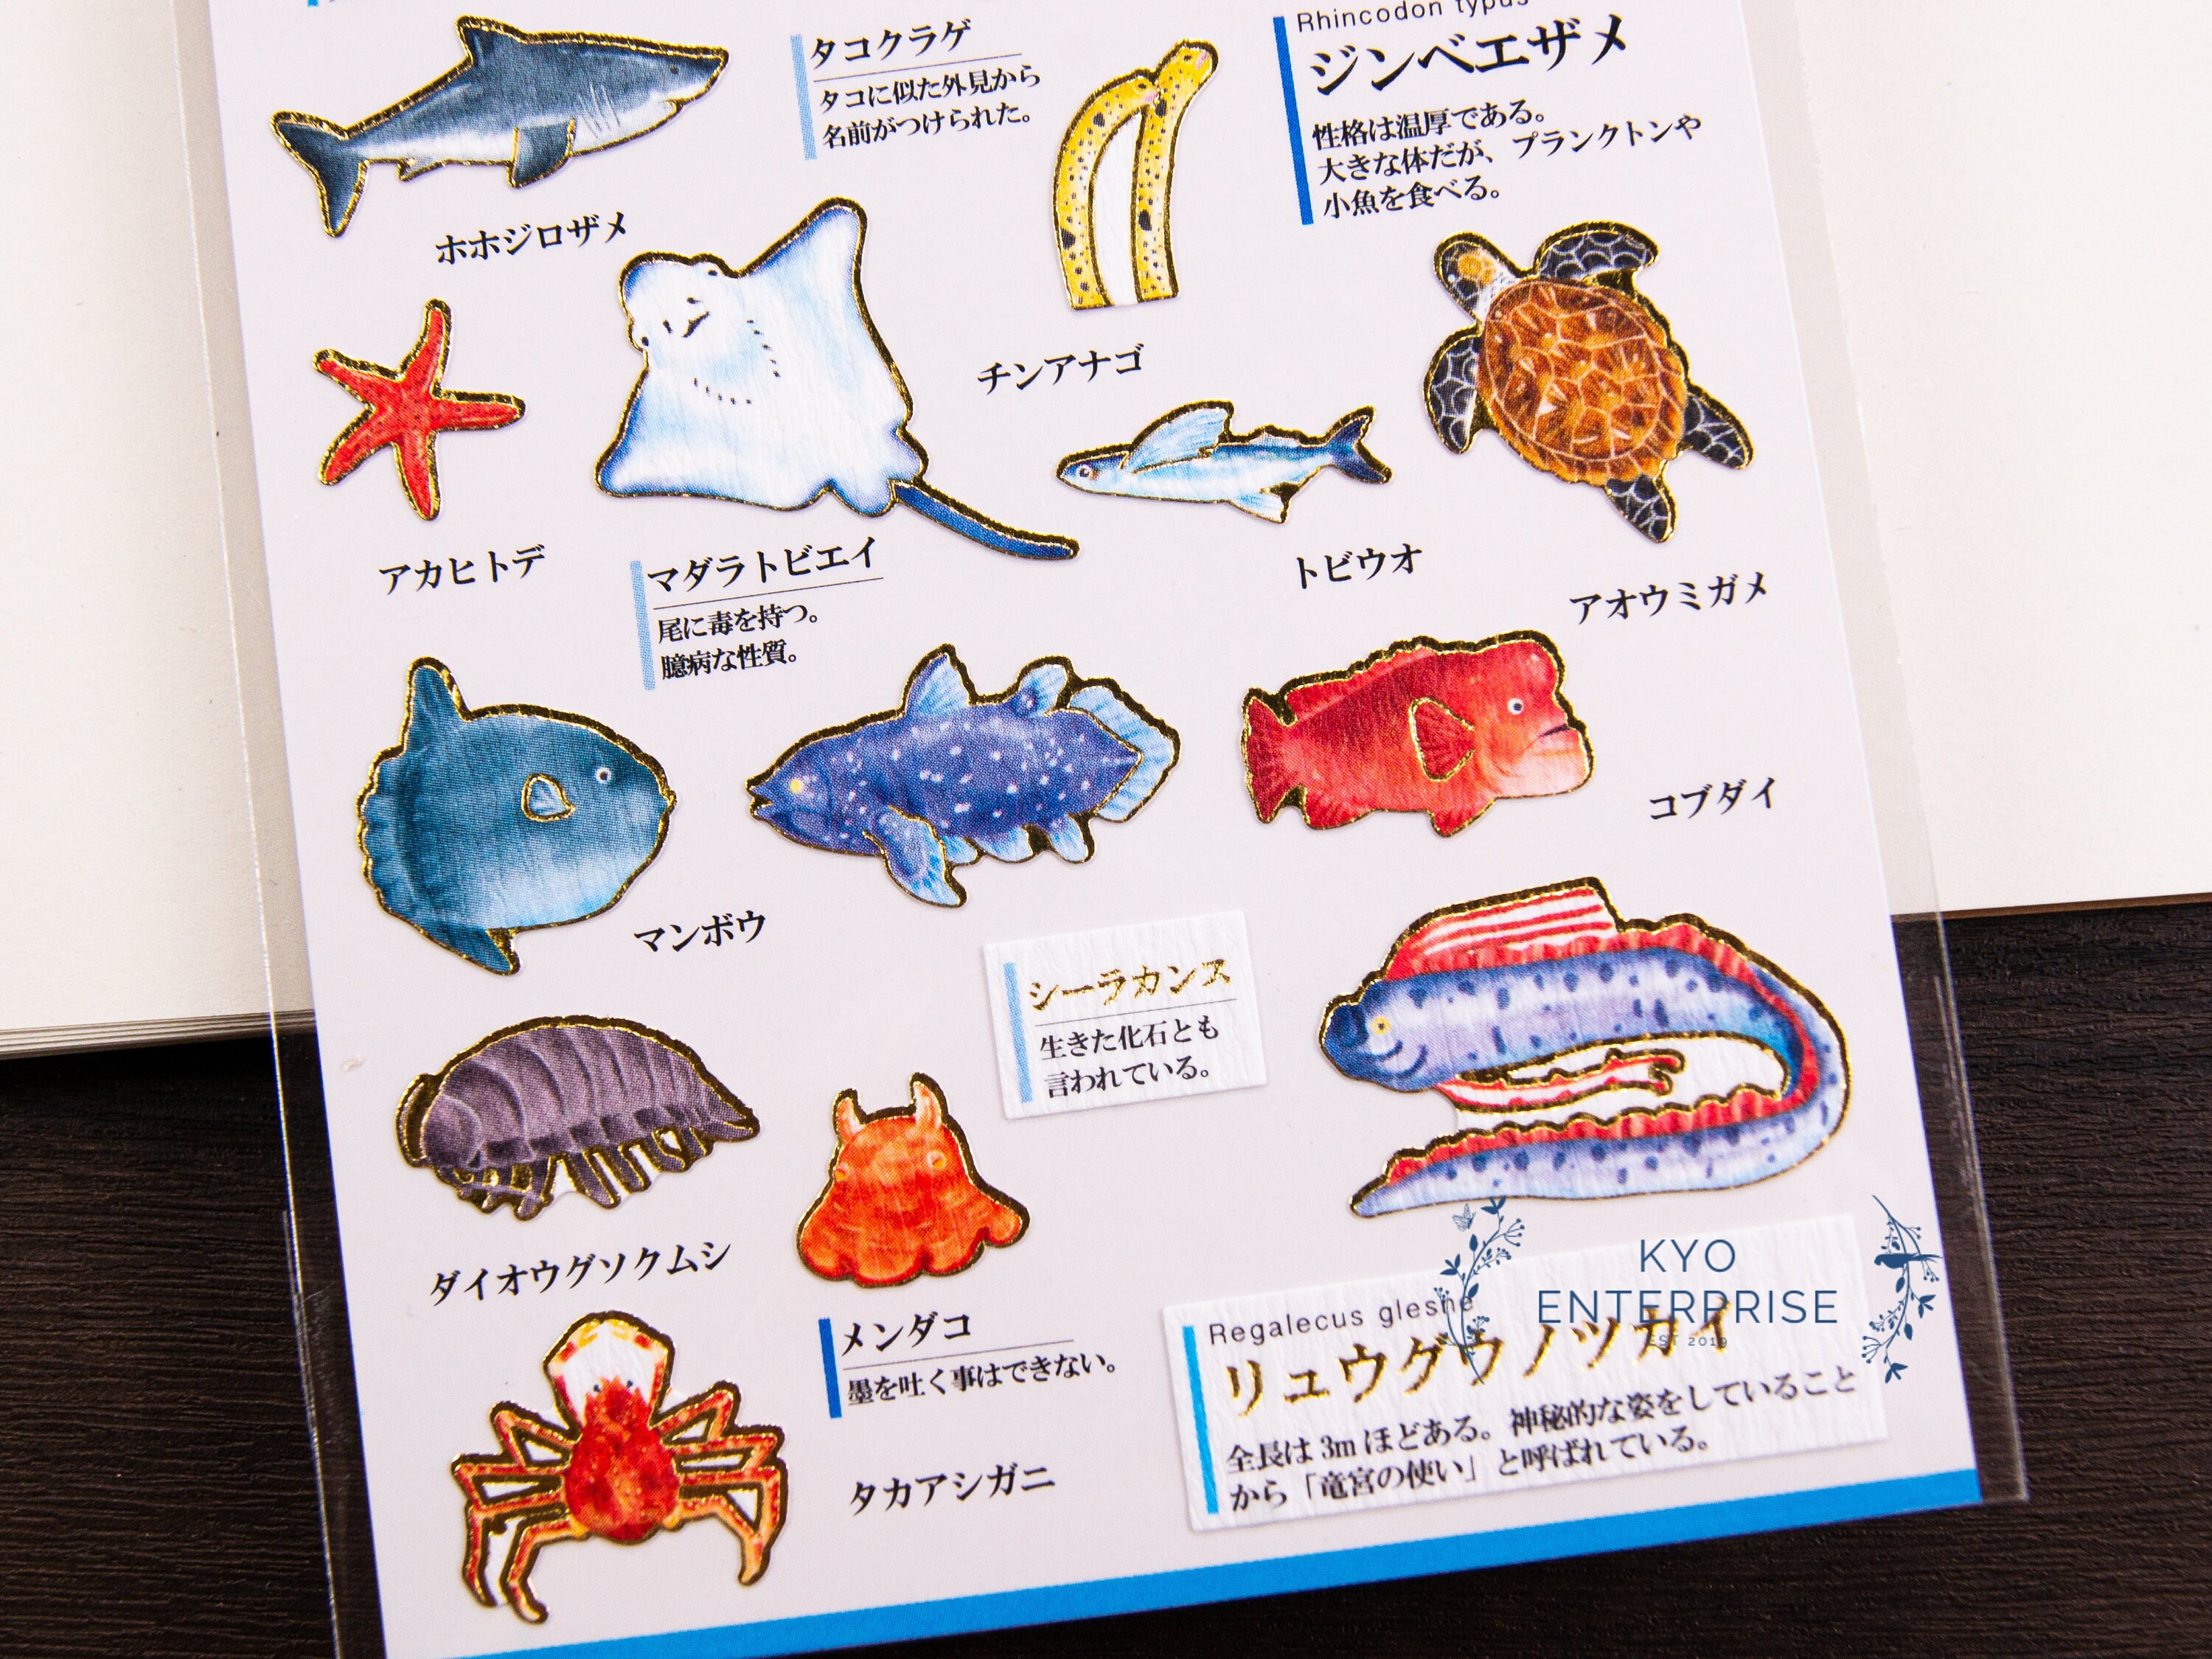 タコクラゲ
タコに似た外見から
名前がつけられた。
Rhincodon typus
ジンベエザメ
性格は温厚である。
大きな体だが、プランクトンや
小魚を食べる。
ホホジロザメ
チンアナゴ
アカヒトデ
マダラトビエイ
尾に毒を持つ。
臆病な性質。
トビウオ
アオウミガメ
コブダイ
マンボウ
シーラカンス
生きた化石とも
言われている。
ダイオウグソクムシ
メンダコ
墨を吐く事はできない。
タカアシガニ
KYO
ENTERPRISE
EST 2019
Regalecus glesne
リュウグウノツカイ
全長は 3m ほどある。神秘的な姿をしていること
から「竜宮の使い」と呼ばれている。